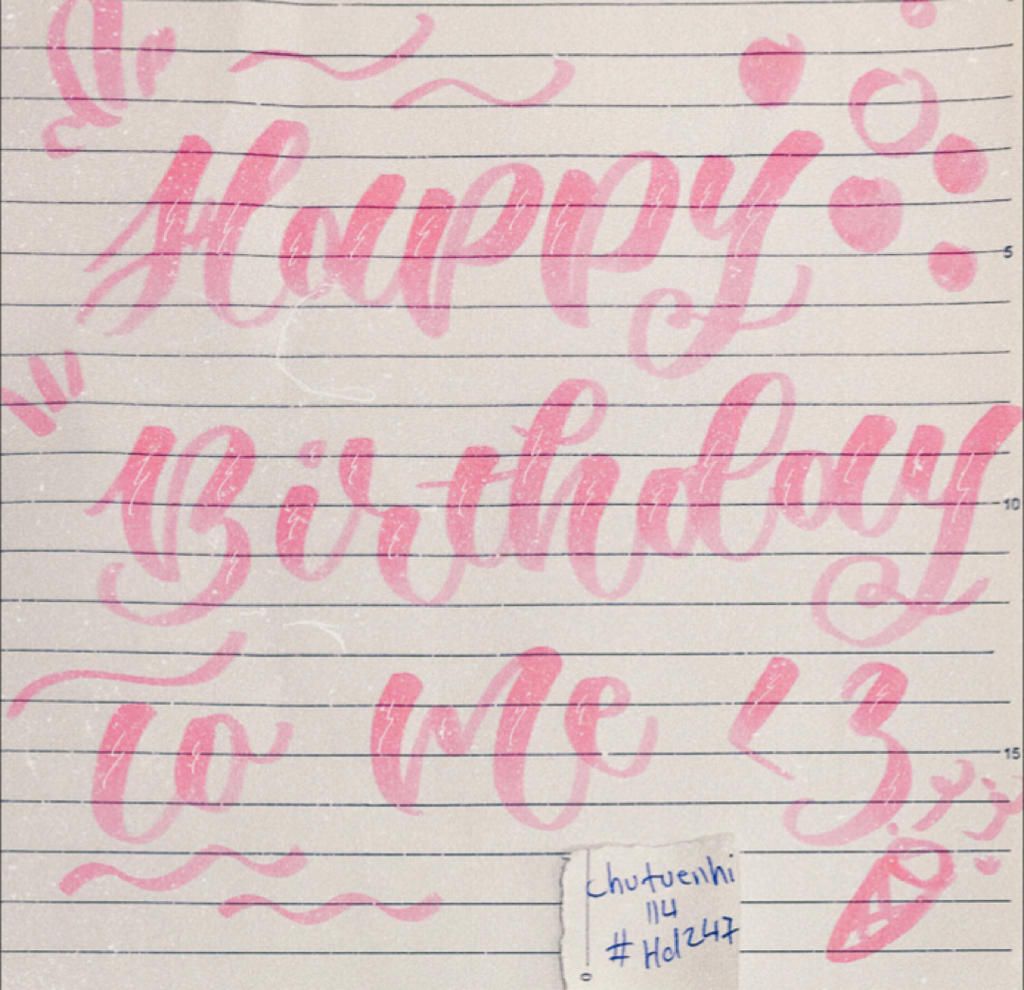 Happy
5
Birthday
10
to Me <3
15
chutuenhi
114
#Hd247
0